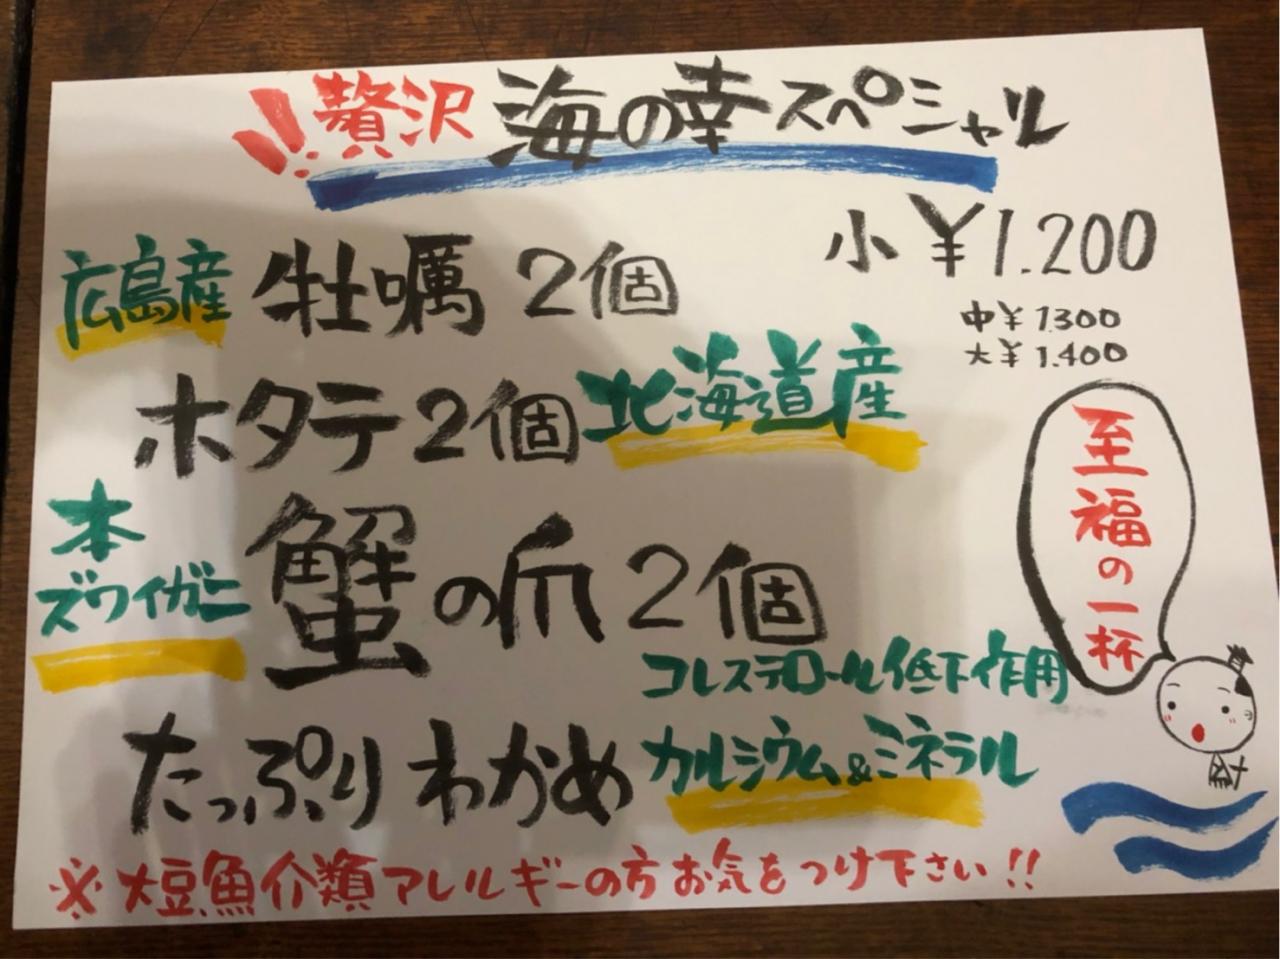 !!贅沢 海の幸スペシャル
小 ¥1.200
中¥1300
大¥1.400
広島産 牡蠣 2個
ホタテ2個 北海道産
本ズワイガニ 蟹の爪2個
コレステロール低下作用
たっぷりわかめ カルシウム&ミネラル
至福の一杯
※大豆魚介類アレルギーの方お気をつけ下さい!!